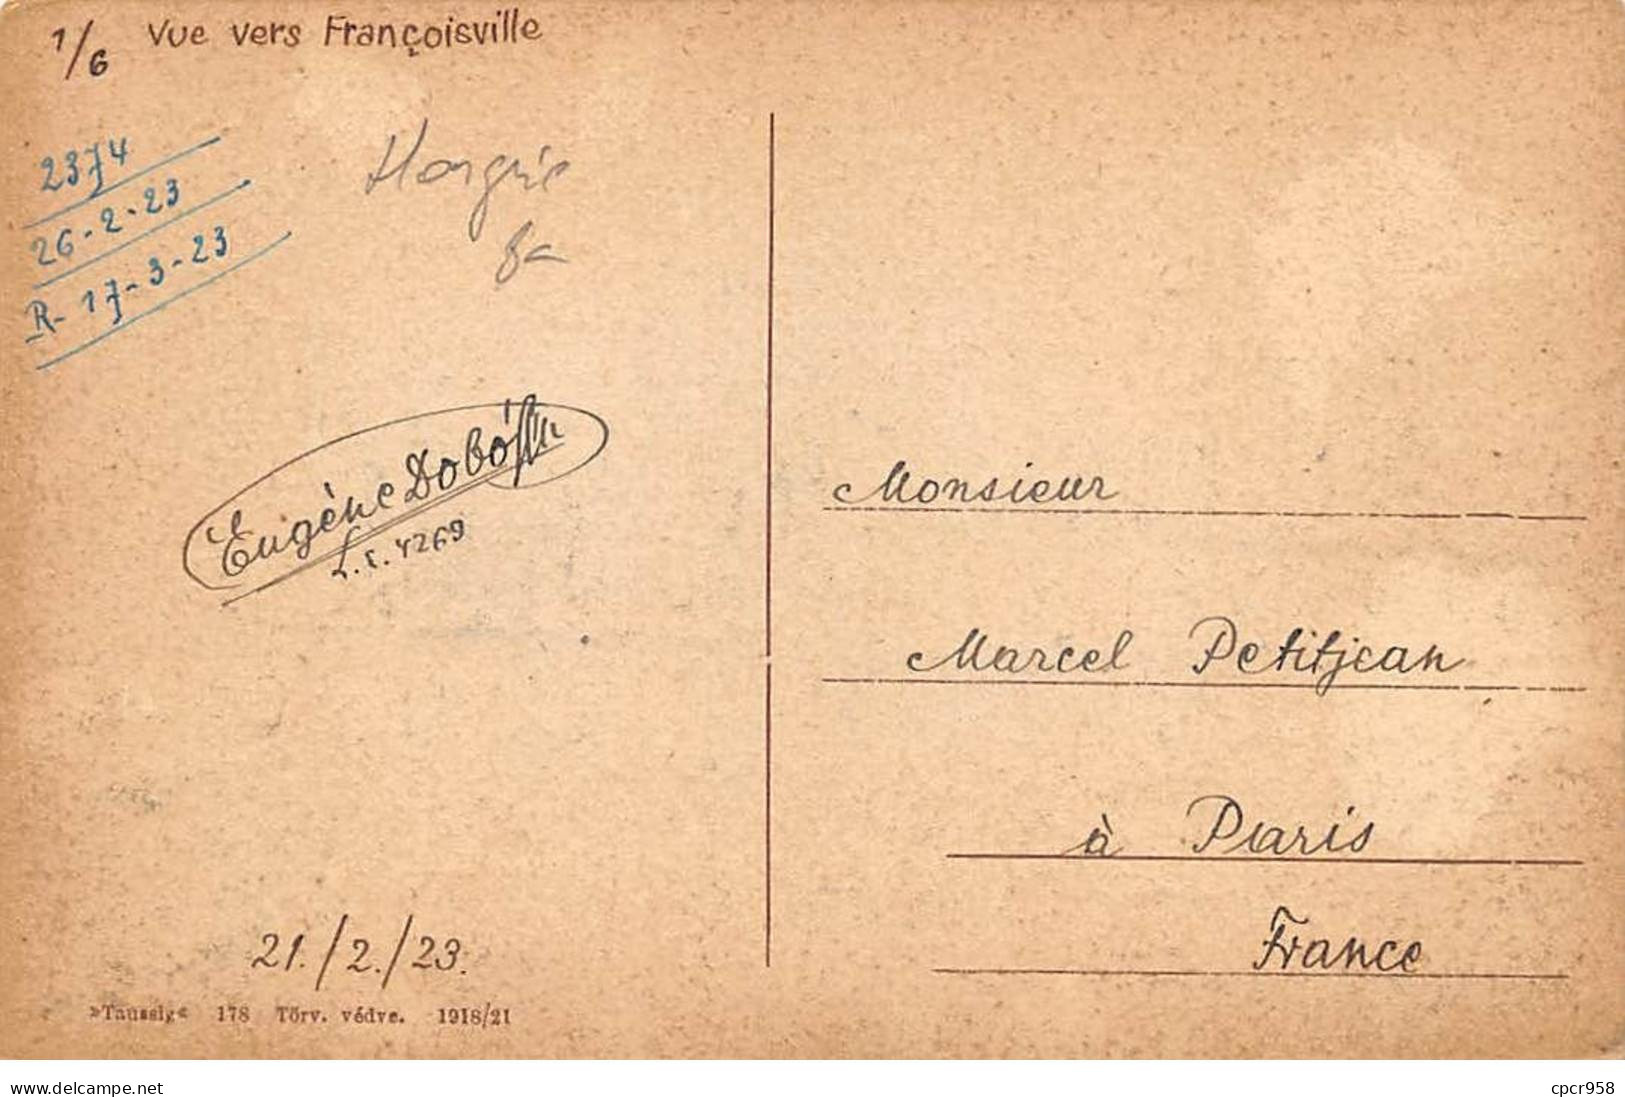 1/6 Vue vers Françoisville
2374
26-2-23
R- 17-3-23
Hongrie
Eugène Dobó
L.c. 4269
Monsieur
Marcel Petitjean
à Paris
France
21./2./23.
»Taussig« 178 Törv. védve. 1918/21
www.delcampe.net
cpcr958